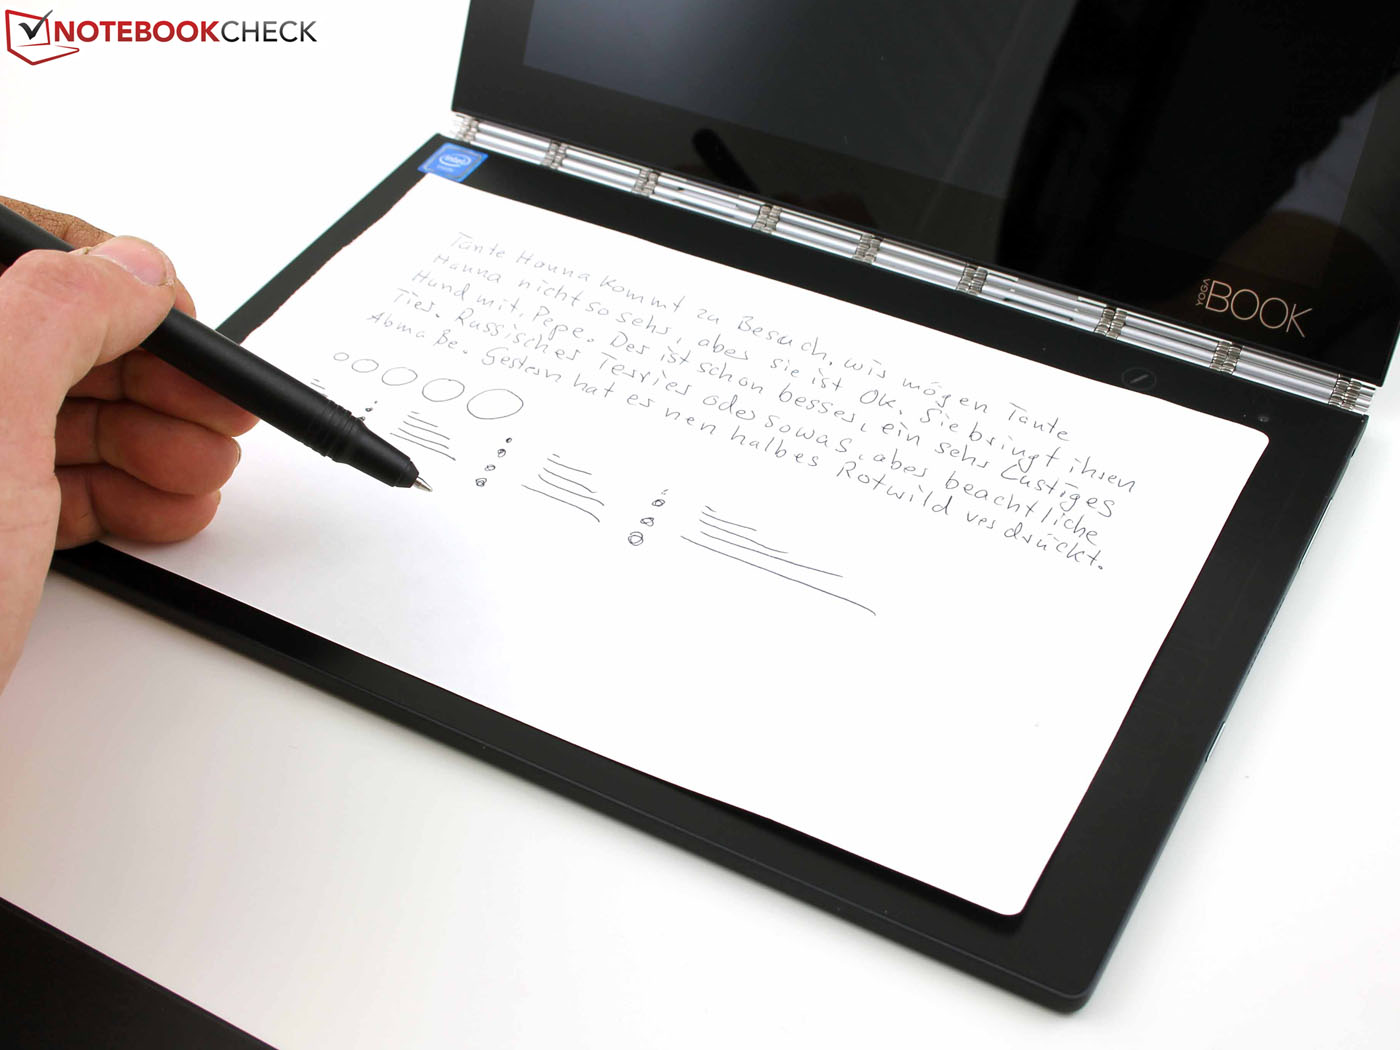 NOTEBOOKCHECK
intel
YOGA BOOK
Tante Hanna kommt zu Besuch, wir mögen Tante
Hanna nicht so sehr, aber sie ist OK. Sie bringt ihren
Hund mit, Pepe. Der ist schon besser, ein sehr lustiges
Tier. Russischer Terrier oder sowas, aber beachtliche
Abmaße. Gestern hat er nen halbes Rotwild verdrückt.